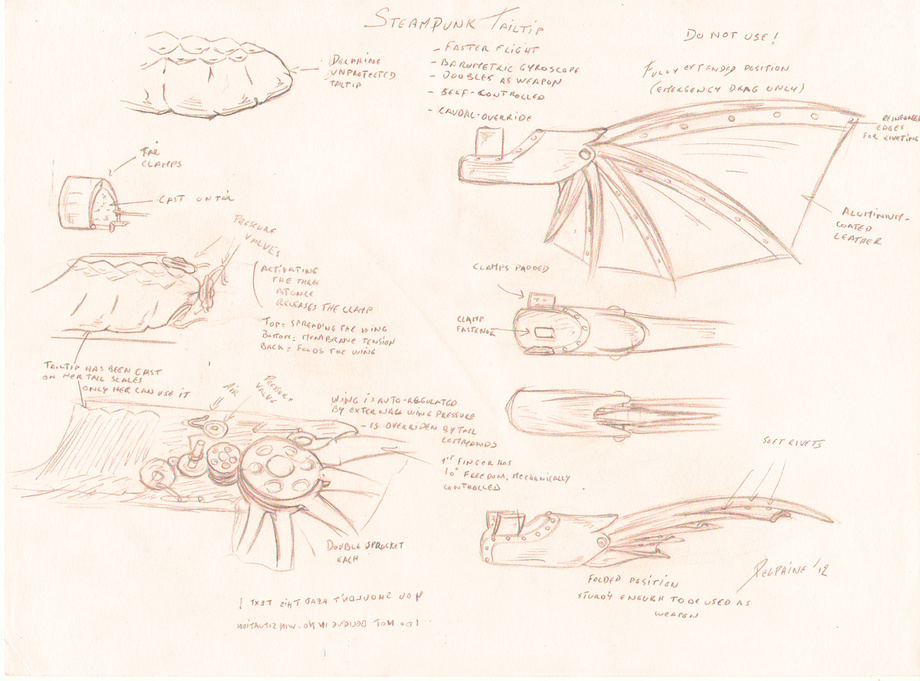 STEAMPUNK TAILTIP
- FASTER FLIGHT
- BAROMETRIC GYROSCOPE
- DOUBLES AS WEAPON
- SELF-CONTROLLED
- CAUDAL-OVERRIDE
DO NOT USE!
FULLY EXTENDED POSITION
(EMERGENCY DRAG ONLY)
UNPROTECTED
TAILTIP
TAIL
CLAMPS
CAST ON TAIL
PRESSURE
VALVES
ACTIVATING
THE THREE
AT ONCE
RELEASES THE CLAMP
TOP: SPREADING THE WING
BOTTOM: MEMBRANE TENSION
BACK: FOLDS THE WING
TAILTIP HAS BEEN CAST
ON HER TAIL SCALES
ONLY HER CAN USE IT
AIR
PRESSURE
VALVE
WING IS AUTO-REGULATED
BY EXTERNAL WING PRESSURE
- IS OVERRIDEN BY TAIL
COMMANDS
1ST FINGER HAS
10° FREEDOM, MECHANICALLY
CONTROLLED
DOUBLE SPROCKET
EACH
REINFORCED
EDGES
FOR RIVETING
ALUMINIUM-
COATED
LEATHER
CLAMPS PADDED
CLAMP
FASTENER
SOFT RIVETS
FOLDED POSITION
STURDY ENOUGH TO BE USED AS
WEAPON
YOU SHOULDN'T READ THIS TEXT !
I DO NOT INDULGE IN NO-WIN SITUATION